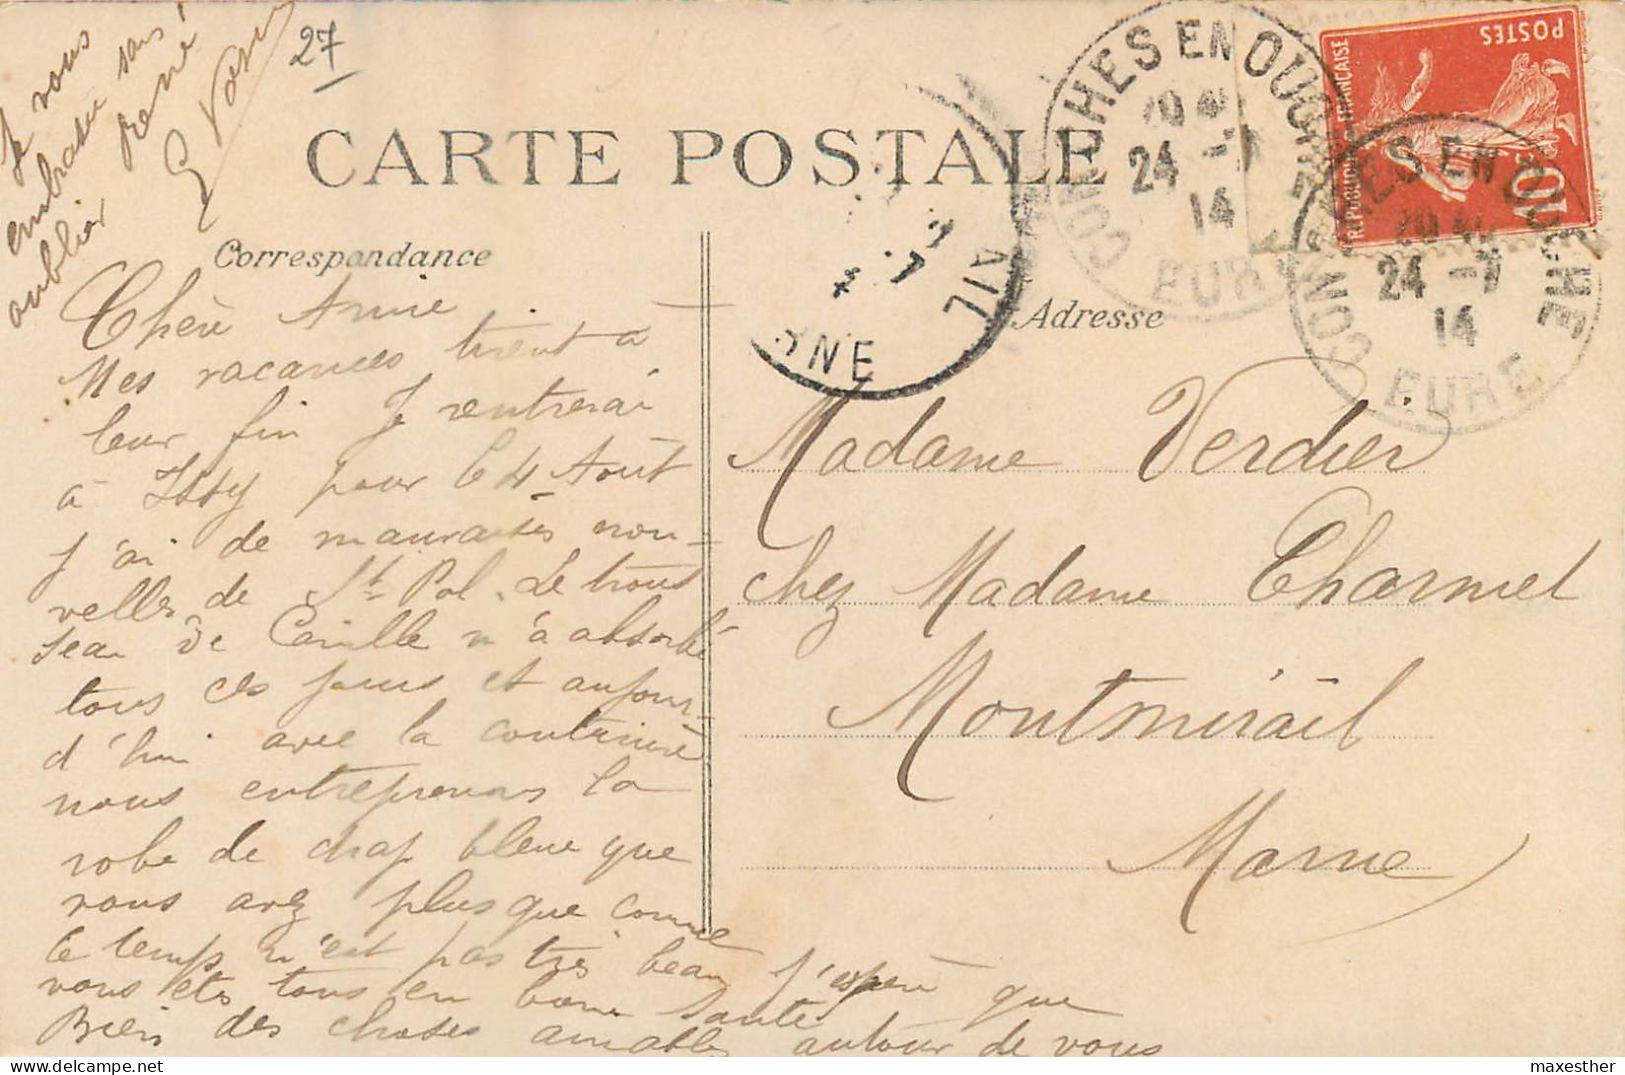 27
CARTE POSTALE
Correspondance
Chère Annie
Mes vacances tirent à
leur fin Je rentrerai
à Issy pour le 4 Août
J'ai de mauvaises nou-
velles de St Pol. Le trous
seau de Camille m'a absorbé
tous ces jours et aujour-
d'hui avec la couturière
nous entreprenons la
robe de drap bleue que
vous avez plus que comme
le temps n'est pas très beau J'espère que
vous êtes tous en bonne santé
Bien des choses aimables autour de vous
Je vous
embrasse sans
oublier René
Adresse
Madame Verdier
chez Madame Charmet
Montmirail
Marne
CONCHES EN OUCHE
24 -7
14
EURE
CONCHES EN OUCHE
24 -7
14
EURE
AIL
RNE
POSTES
REPUBLIQUE FRANÇAISE
10
maxesther